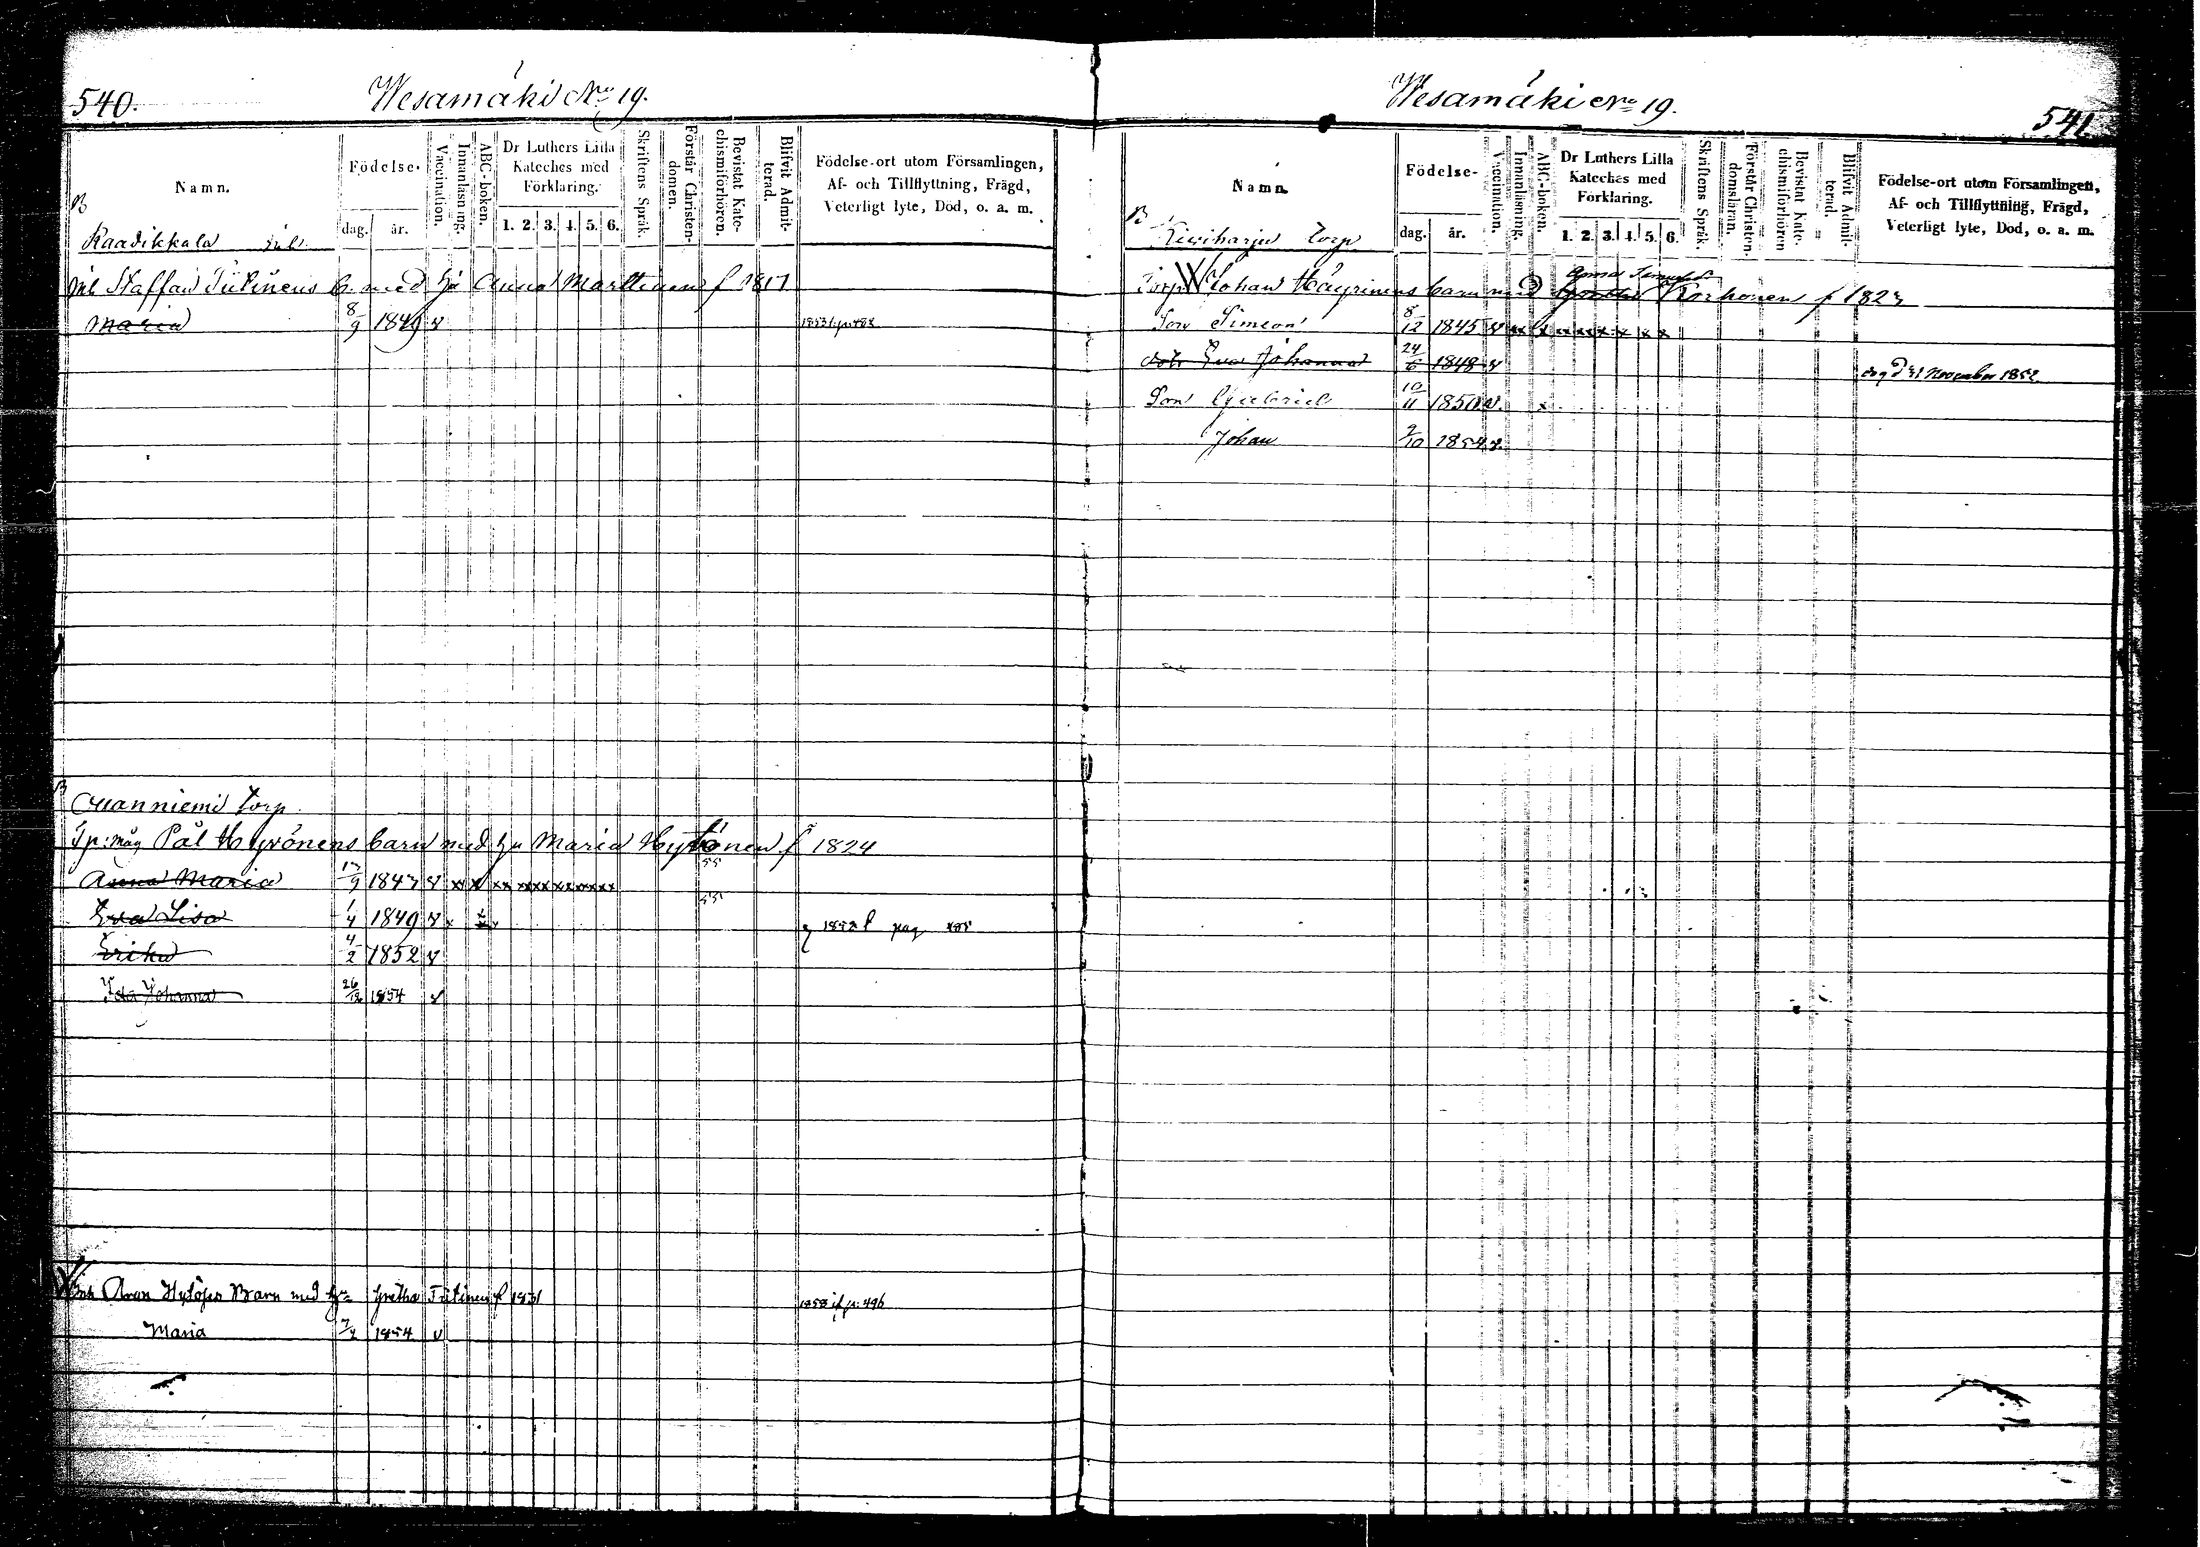 540.
Wesamäki No 19.
Namn.
Födelse-
dag. år.
Vaccination.
Innanläsning.
ABC-boken.
Dr Luthers Lilla
Kateches med
Förklaring.
1. 2. 3. 4. 5. 6.
Skriftens Språk.
Förstår Christen-
domen.
Bevistat Kate-
chismiförhören.
Blifvit Admit-
terad.
Födelse-ort utom Församlingen,
Af- och Tillflyttning, Frägd,
Veterligt lyte, Död, o. a. m.
B
Raadikkala
Staffan Tiitinens b. med hu Anna Marttinen f 1817
Maria 8/9 1849 v
B
Manniemi Torp
Tp: måg Pål Häyrönens barn med hu Maria Hytönen f 1824
55
Anna Maria 17/9 1847 v x x x xx xxxx xxxxxx
55
Eva Lisa 1/4 1849 v x
Erika 4/2 1852 v
Ida Johanna 26/12 1854 v
Aron Hytöjes Barn med hu Gretha Tiitinen f 1831
1858 if p. 496
Maria 1854 v
Wesamäki No 19.
541
Namn.
Födelse-
dag. år.
Vaccination.
Innanläsning.
ABC-boken.
Dr Luthers Lilla
Kateches med
Förklaring.
1. 2. 3. 4. 5. 6.
Skriftens Språk.
Förstår Christen-
domsläran.
Bevistat Kate-
chismiförhören
Blifvit Admit-
terad.
Födelse-ort utom Församlingen,
Af- och Tillflyttning, Frägd,
Veterligt lyte, Död, o. a. m.
B
Kiviharju Torp
Anna
Torp Johan Häyrinens barn med Korhonen f 1823
Son Simeon 8/12 1845 v x x x x x x x x
dotr Eva Johanna 24/6 1848 v
November 1852
Son Gabriel 10/11 1850 v x
Johan 9/10 1854 v